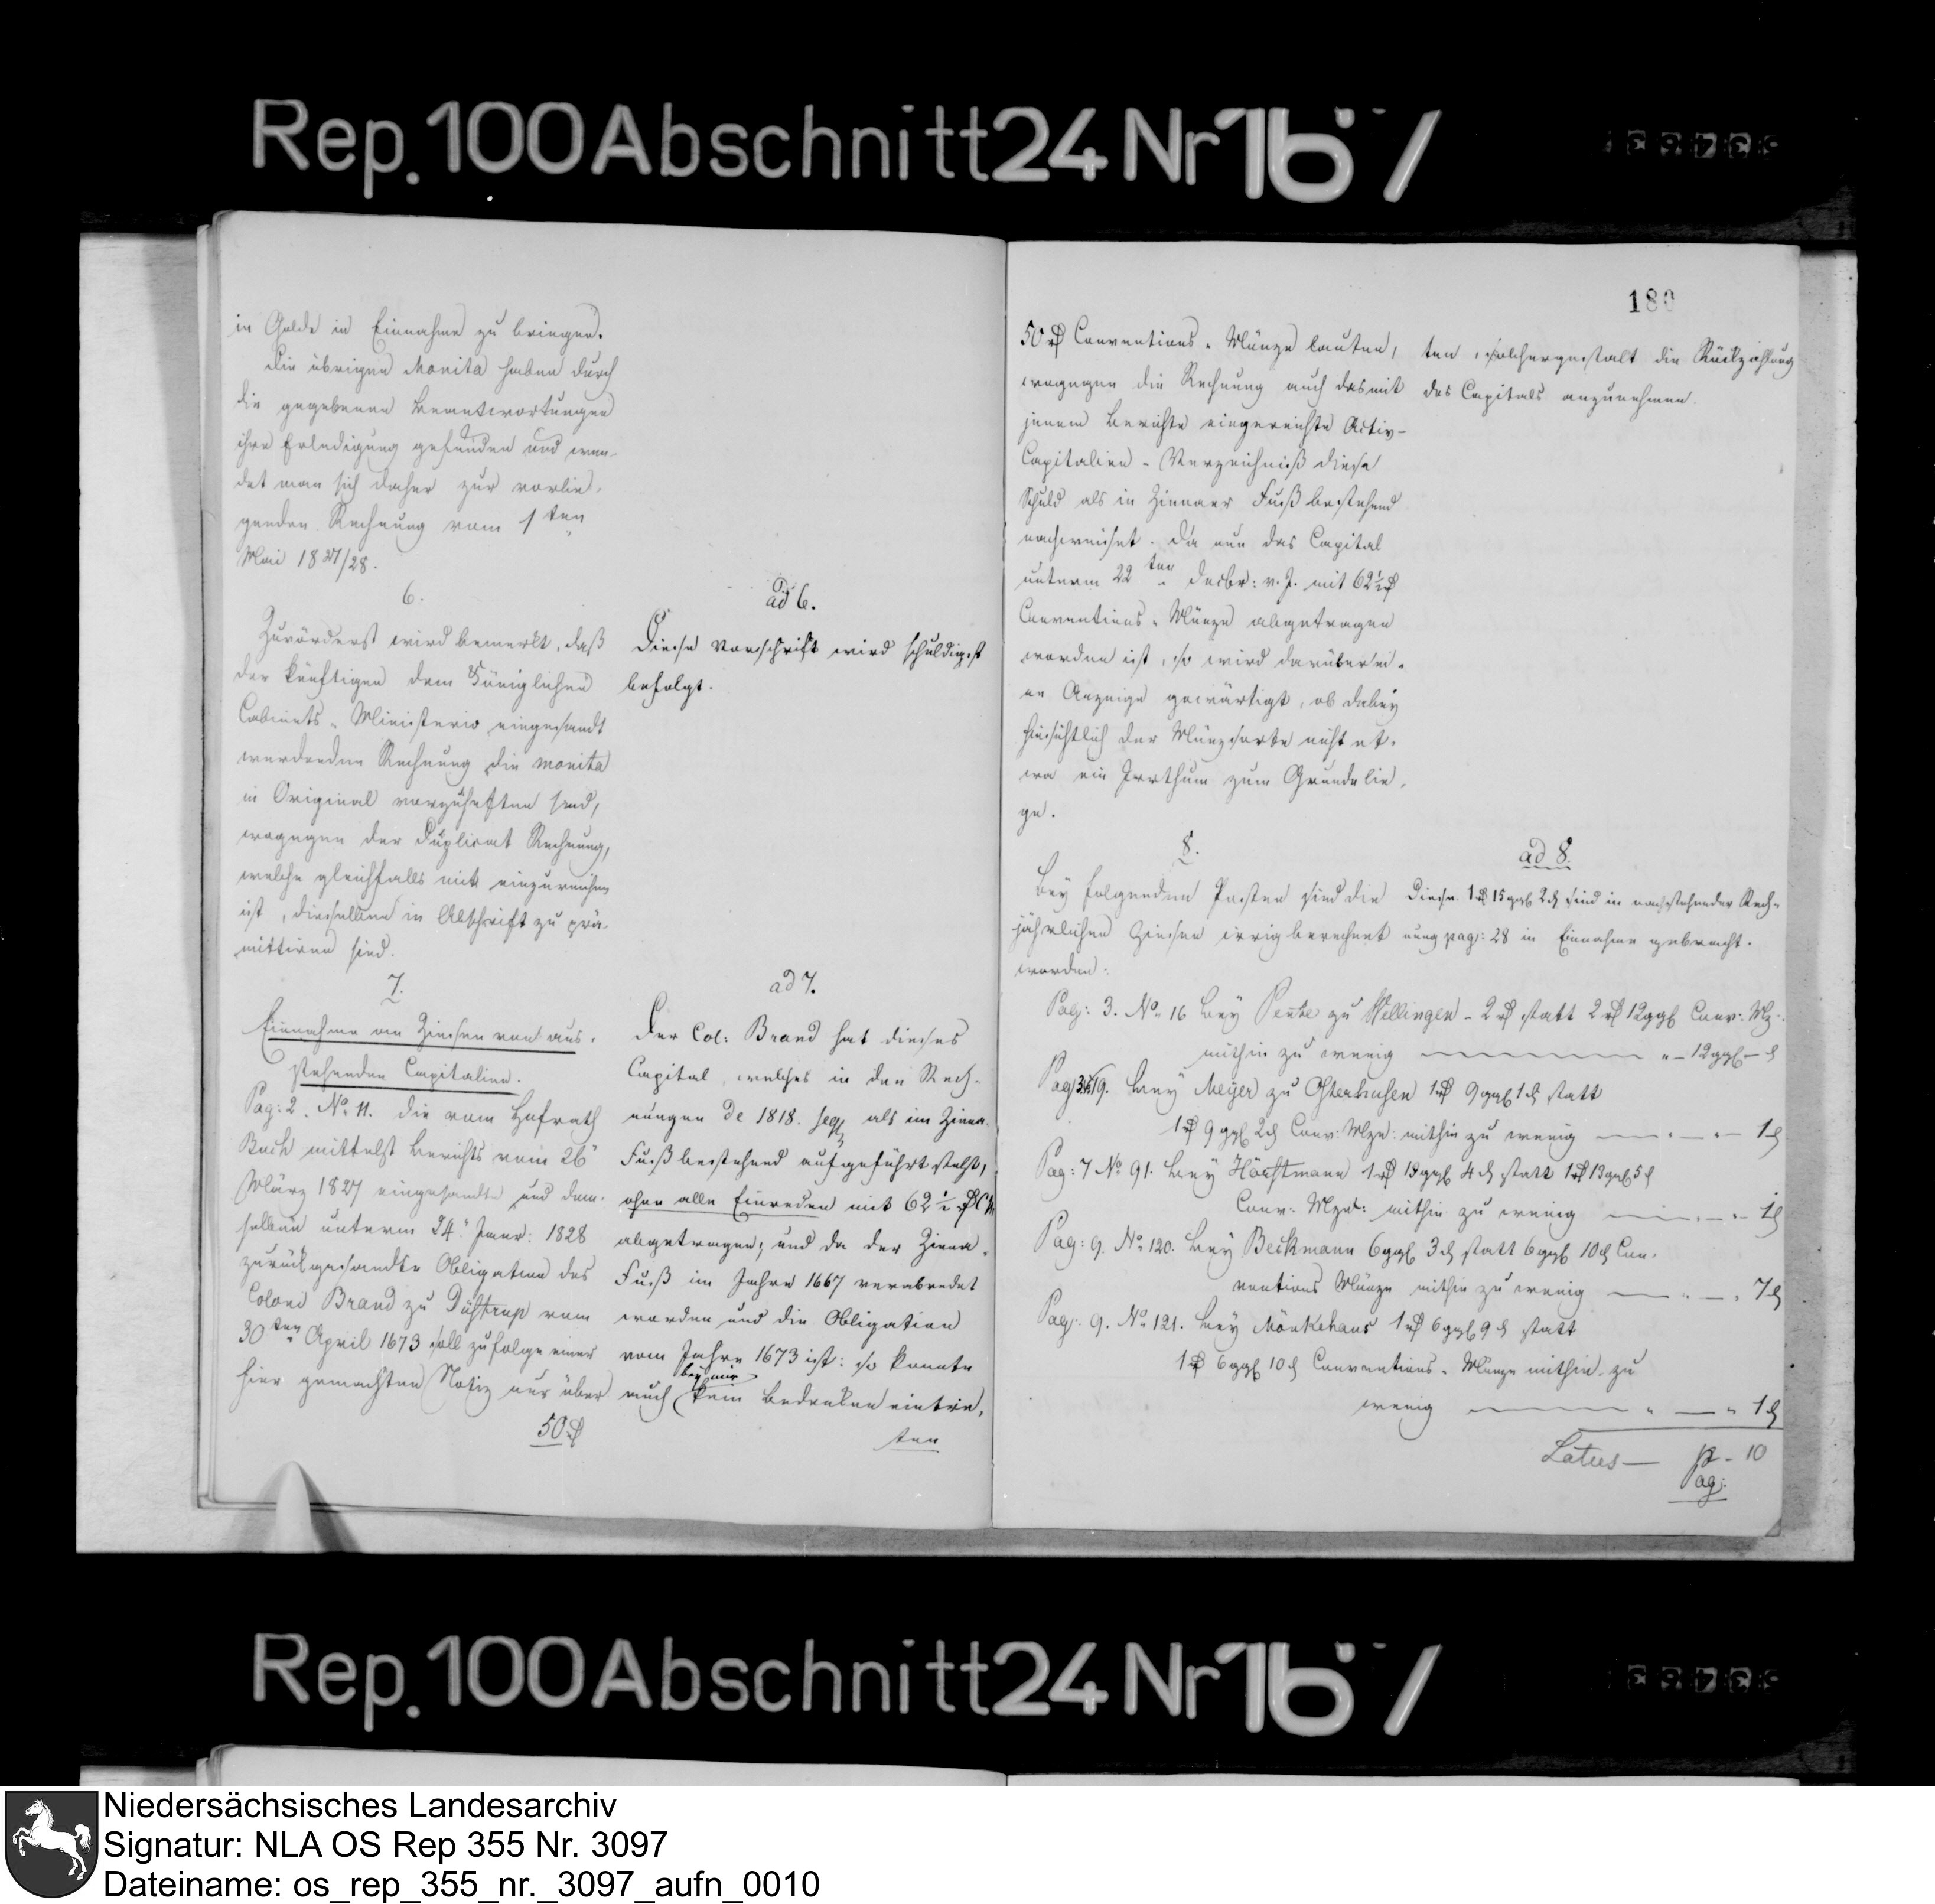 Rep. 100 Abschnitt 24 Nr 167
in Golde in Einnahme zu bringen.
Die übrigen Monita haben durch
die gegebenen Beantwortungen
ihre Erledigung gefunden und wen-
det man sich daher zur vorlie-
genden Rechnung vom 1ten
Mai 1827/28.
6.
Zuvörderst wird bemerkt, daß
der künftigen dem Königlichen
Cabinets-Ministerio eingesandt
werdenden Rechnung die monita
in Original vorzuheften sind,
wogegen der Duplicat Rechnung,
welche gleichfalls mit einzureichen
ist, dieselben in Abschrift zu prä-
mittiren sind.
7.
Einnahme an Zinsen von aus-
stehenden Capitalien.
Pag: 2. No. 11. Die vom Hofrath
Buch mittelst Berichts vom 26"
März 1827 eingesandte und dem-
selben unterm 24." Januar: 1828
zurückgesandte Obligation des
Coloni Brand zu Düstrup vom
30ten April 1673 soll zufolge einer
hier gemachten Notiz nur über
50 ₰
ad 6.
Diese Vorschrift wird schuldigst
befolgt.
ad 7.
Der Col: Brand hat dieses
Capital, welches in den Rech-
nungen de 1818. seqq als im Zinna
Fuß bestehend aufgeführt steht,
ohne alle Einreden mit 62 ½ ₰ CM
abgetragen; und da der Zinna-
Fuß im Jahre 1667 verabredet
worden und die Obligation
vom Jahre 1673 ist: so konnte
bey mir
auch kein Bedenken eintre-
ten
180
50 ₰ Conventions-Münze lauten,
wogegen die Rechnung auch das mit
jenem Berichte eingereichte Activ-
Capitalien-Verzeichniß diese
Schuld als in Zinnaer Fuß bestehend
nachweiset. Da nun das Capital
unterm 22ten Decbr: v. J. mit 62½ ₰
Conventions-Münze abgetragen
worden ist, so wird darüber ei-
ne Anzeige gewärtigt, ob dabey
hinsichtlich der Münzsorte nicht et-
wa ein Irrthum zum Grunde lie-
ge.
ten, solchergestalt die Rückzahlung
des Capitals anzunehmen.
8.
Bey folgenden Posten sind die
jährlichen Zinsen irrig berechnet
worden:
ad 8.
Diese 1 ₰ 15 ggl 2 ₰ sind in nachstehender Rech-
nung pag: 28 in Einnahme gebracht.
Pag: 3. No. 16 Bey Pente zu Wellingen - 2 ₰ statt 2 ₰ 12 ggl Conv: Mz:
mithin zu wenig — " - 12 ggl - ₰
Pag: 3. 19. Bey Meyer zu Osterhusen 1 ₰ 9 ggl 1 ₰ statt
1 ₰ 9 ggl 2 ₰ Conv: Mze: mithin zu wenig — " — " - 1 ₰
Pag: 7 No 91. Bey Hörstmann 1 ₰ 13 ggl 4 ₰ statt 1 ₰ 13 ggl 5 ₰
Conv: Mze: mithin zu wenig — " — " - 1 ₰
Pag: 9. No. 120. Bey Beckmann 6 ggl 3 ₰ statt 6 ggl 10 ₰ Con-
ventions Münze mithin zu wenig — " — " 7 ₰
Pag: 9. No. 121. Bey Mönkehaus 1 ₰ 6 ggl 9 ₰ statt
1 ₰ 6 ggl 10 ₰ Conventions-Münze mithin zu
wenig — " — " 1 ₰
Latus — 12 - 10
Pag:
Rep. 100 Abschnitt 24 Nr 167
Niedersächsisches Landesarchiv
Signatur: NLA OS Rep 355 Nr. 3097
Dateiname: os_rep_355_nr._3097_aufn_0010